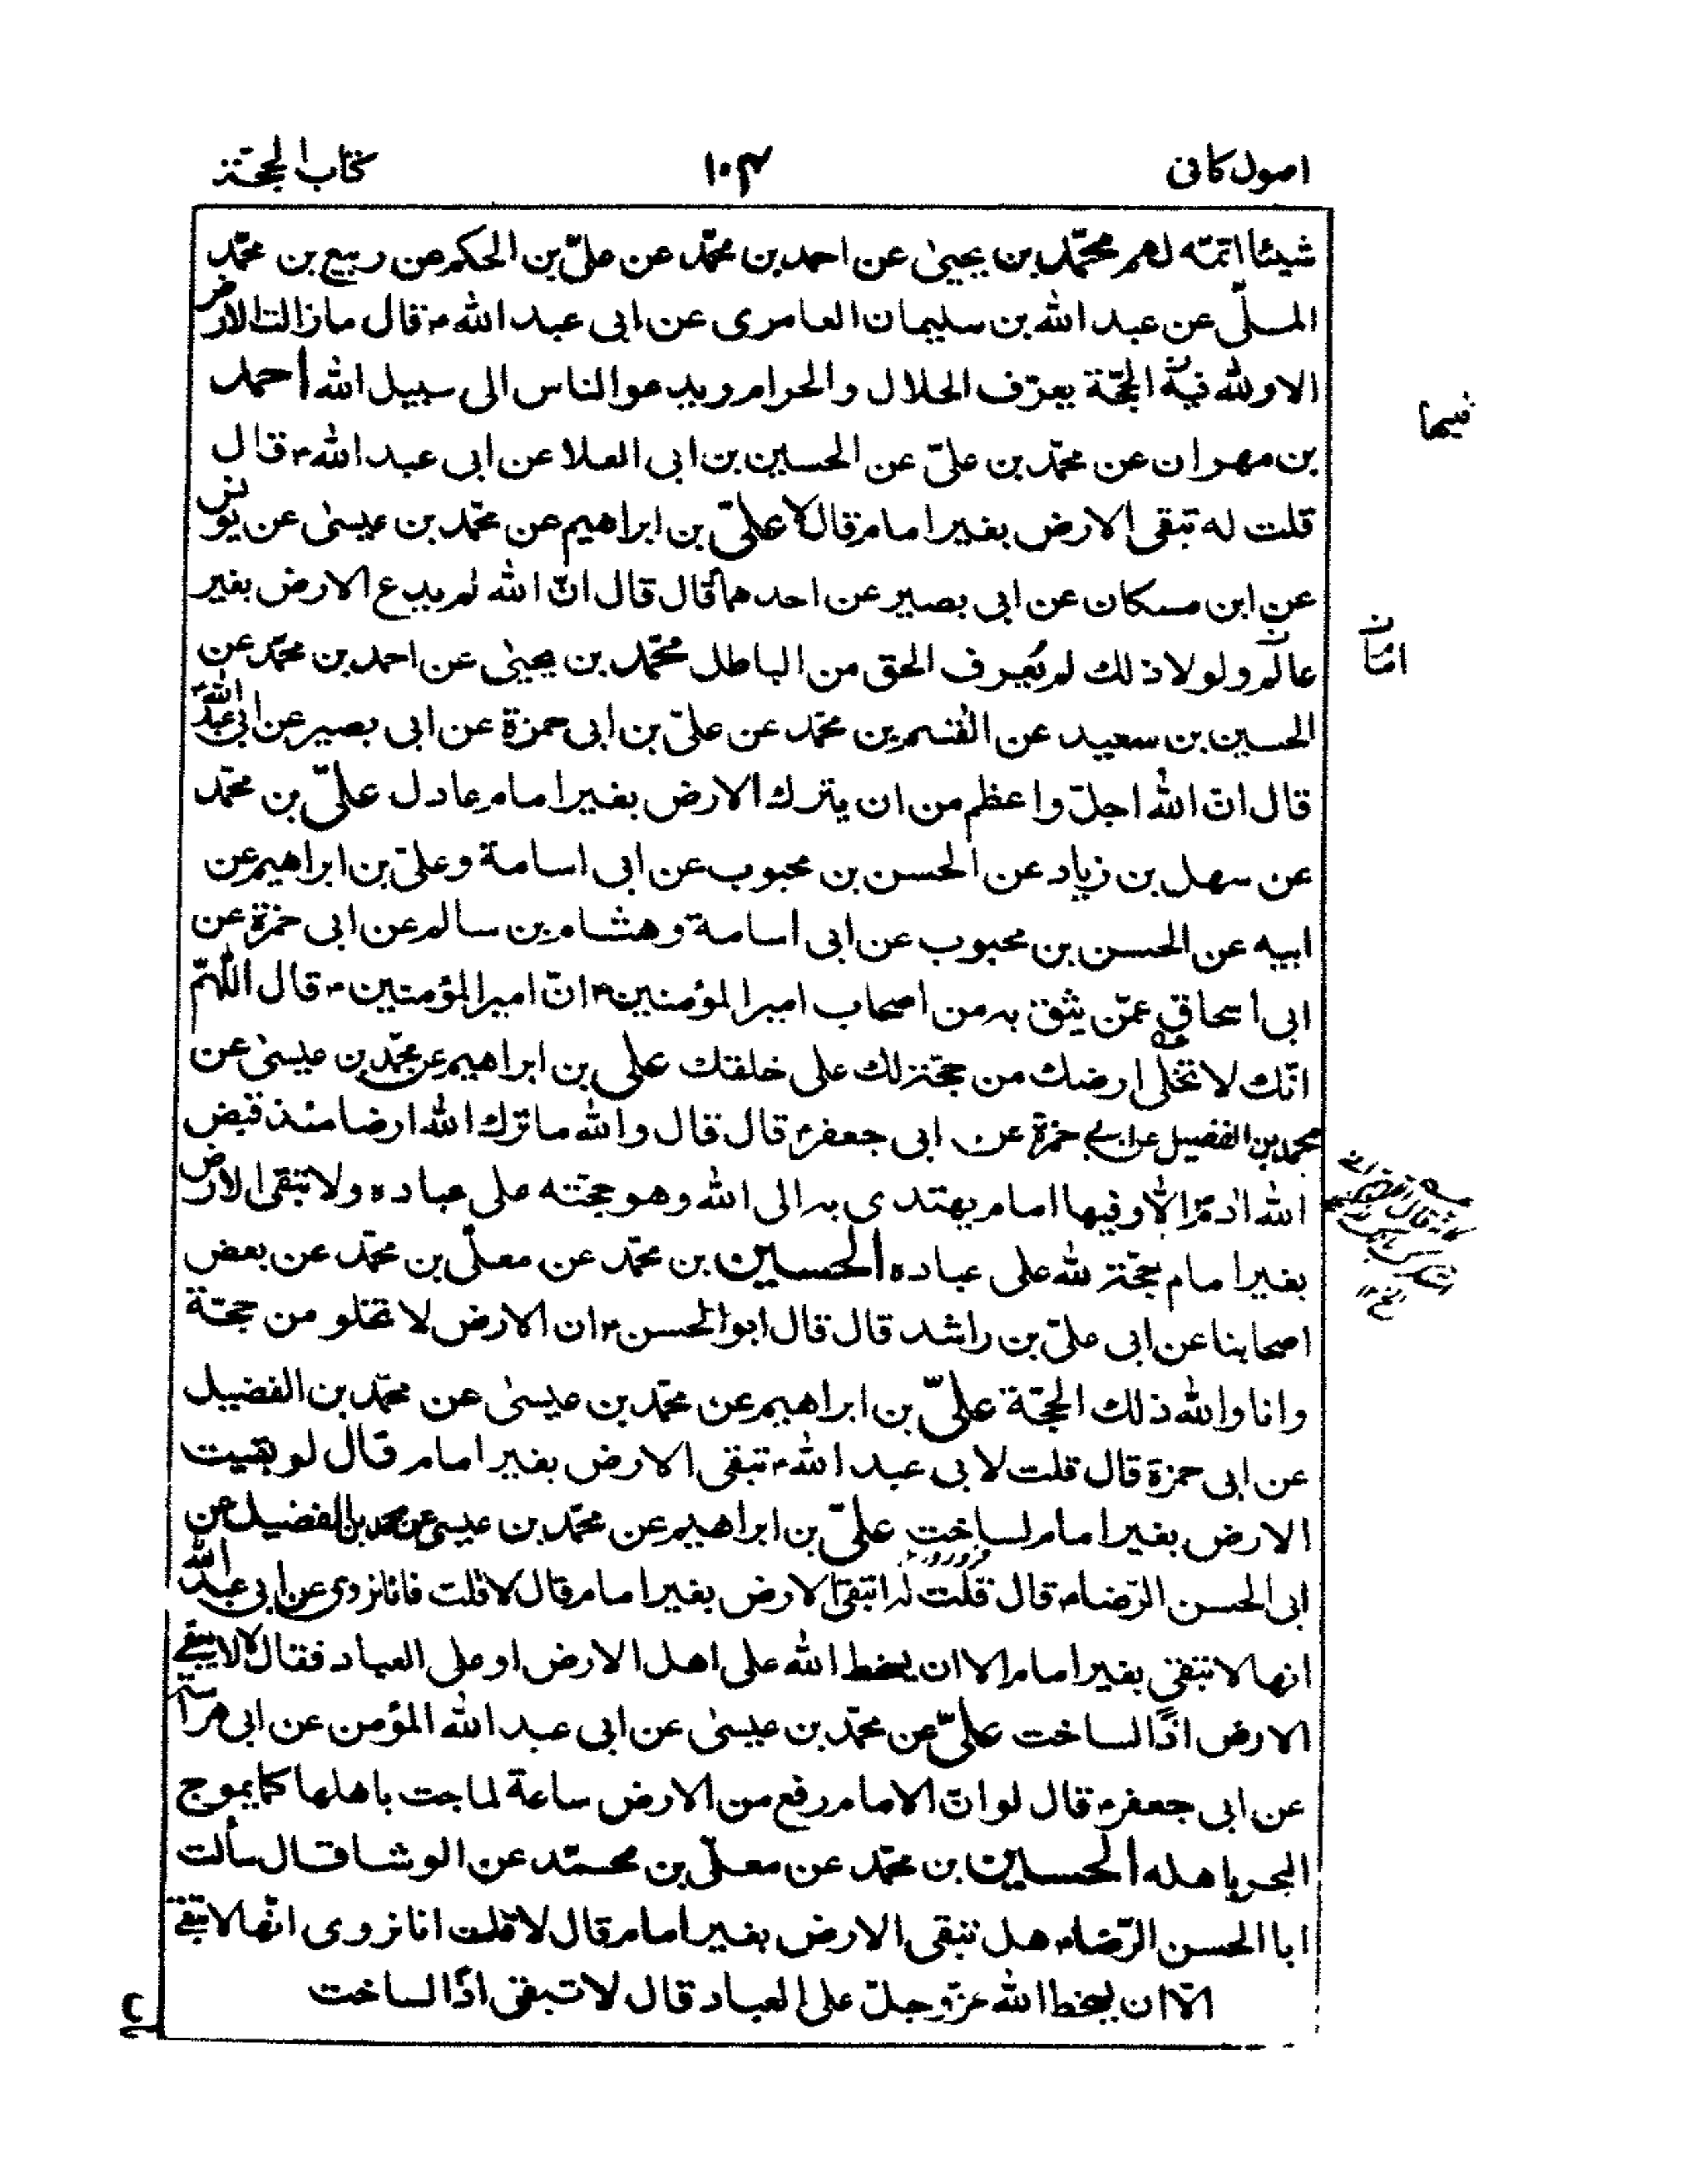 اصول كافى ١٠٤ كتاب الحجّة
شيئا اتمّه لهم محمّد بن يحيىٰ عن احمد بن محمّد عن علىّ بن الحكم عن ربيع بن محمّد
المسلّى عن عبد الله بن سليمان العامرى عن ابى عبد الله ؑ قال مازالت الارض
الا ولله فيه الحجّة يعرّف الحلال والحرام ويدعوا الناس الى سبيل الله احمد
فيها
بن مهران عن محمّد بن علىّ عن الحسين بن ابى العلا عن ابى عبد الله ؑ قال
قلت له تبقى الارض بغير امام قال لا علىّ بن ابراهيم عن محمّد بن عيسىٰ عن يونس
عن ابن مسكان عن ابى بصير عن احدهما قال قال انّ الله لم يدع الارض بغير
عالم ولولا ذلك لم يُعرف الحق من الباطل محمّد بن يحيىٰ عن احمد بن محمّد عن
الحسين بن سعيد عن القٰسم بن محمّد عن علىّ بن ابى حمزة عن ابى بصير عن ابى عبد الله ؑ
قال انّ الله اجلّ واعظم من ان يترك الارض بغير امام عادل علىّ بن محمّد
عن سهل بن زياد عن الحسن بن محبوب عن ابى اسامة وعلىّ بن ابراهيم عن
ابيه عن الحسن بن محبوب عن ابى اسامة وهشام بن سالم عن ابى حمزة عن
ابى اسحاق عمّن يثق به من اصحاب امير المؤمنين ؑ انّ امير المؤمنين ؑ قال اللّٰهمّ
انّك لا تخلى ارضك من حجّة لك على خلقك على بن ابراهيم عن محمّد بن عيسىٰ عن
محمد بن الفضيل عن ابى حمزة عن ابى جعفر ؑ قال قال والله ما ترك الله ارضا منذ قبض
الله ادم ؑ الّا وفيها امام يهتدى به الى الله وهو حجّته على عباده ولا تبقى الارض
بغير امام حجّة لله على عباده الحسين بن محمّد عن معلّى بن محمّد عن بعض
اصحابنا عن ابى علىّ بن راشد قال قال ابو الحسن ؑ ان الارض لا تخلو من حجّة
وانا والله ذلك الحجّة علىّ بن ابراهيم عن محمّد بن عيسىٰ عن محمّد بن الفضيل
عن ابى حمزة قال قلت لابى عبد الله ؑ تبقى الارض بغير امام قال لو بقيت
الارض بغير امام لساخت علىّ بن ابراهيم عن محمّد بن عيسى عن محمد بن الفضيل عن
ابى الحسن الرّضا ؑ قال قلت له اتبقى الارض بغير امام قال لا قلت فانا نروى عن ابى عبد الله
انها لا تبقى بغير امام الا ان يسخط الله على اهل الارض او على العباد فقال لا لا يبقى
الارض اذًا لساخت علىّ عن محمّد بن عيسىٰ عن ابى عبد الله المؤمن عن ابى هراسة
عن ابى جعفر ؑ قال لو انّ الامام رفع من الارض ساعة لماجت باهلها كما يموج
البحر باهله الحسين بن محمّد عن معلّى بن محمّد عن الوشا قال سألت
ابا الحسن الرّضا ؑ هل تبقى الارض بغير امام قال لا قلت انا نروى انّها لا تبقى
الّا ان يسخط الله عزّ وجلّ على العباد قال لا تبقى اذًا لساخت